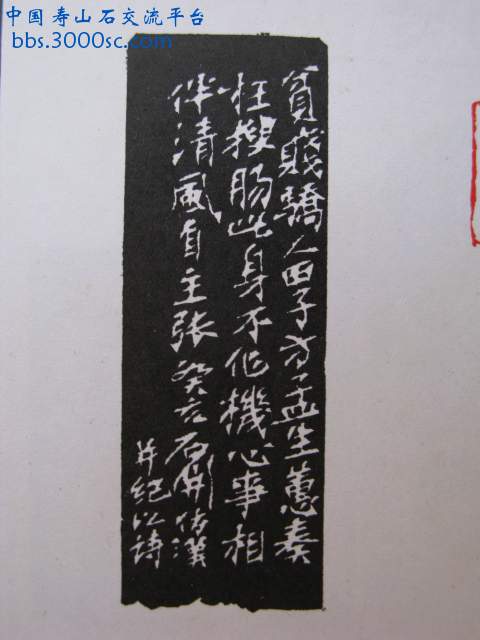 中国寿山石交流平台
bbs.3000sc.com
貧賤驕人田子方孟生蕙奏
枉搜腸此身不作機心事相
伴清風自主張癸亥石開仿漢
并紀以詩